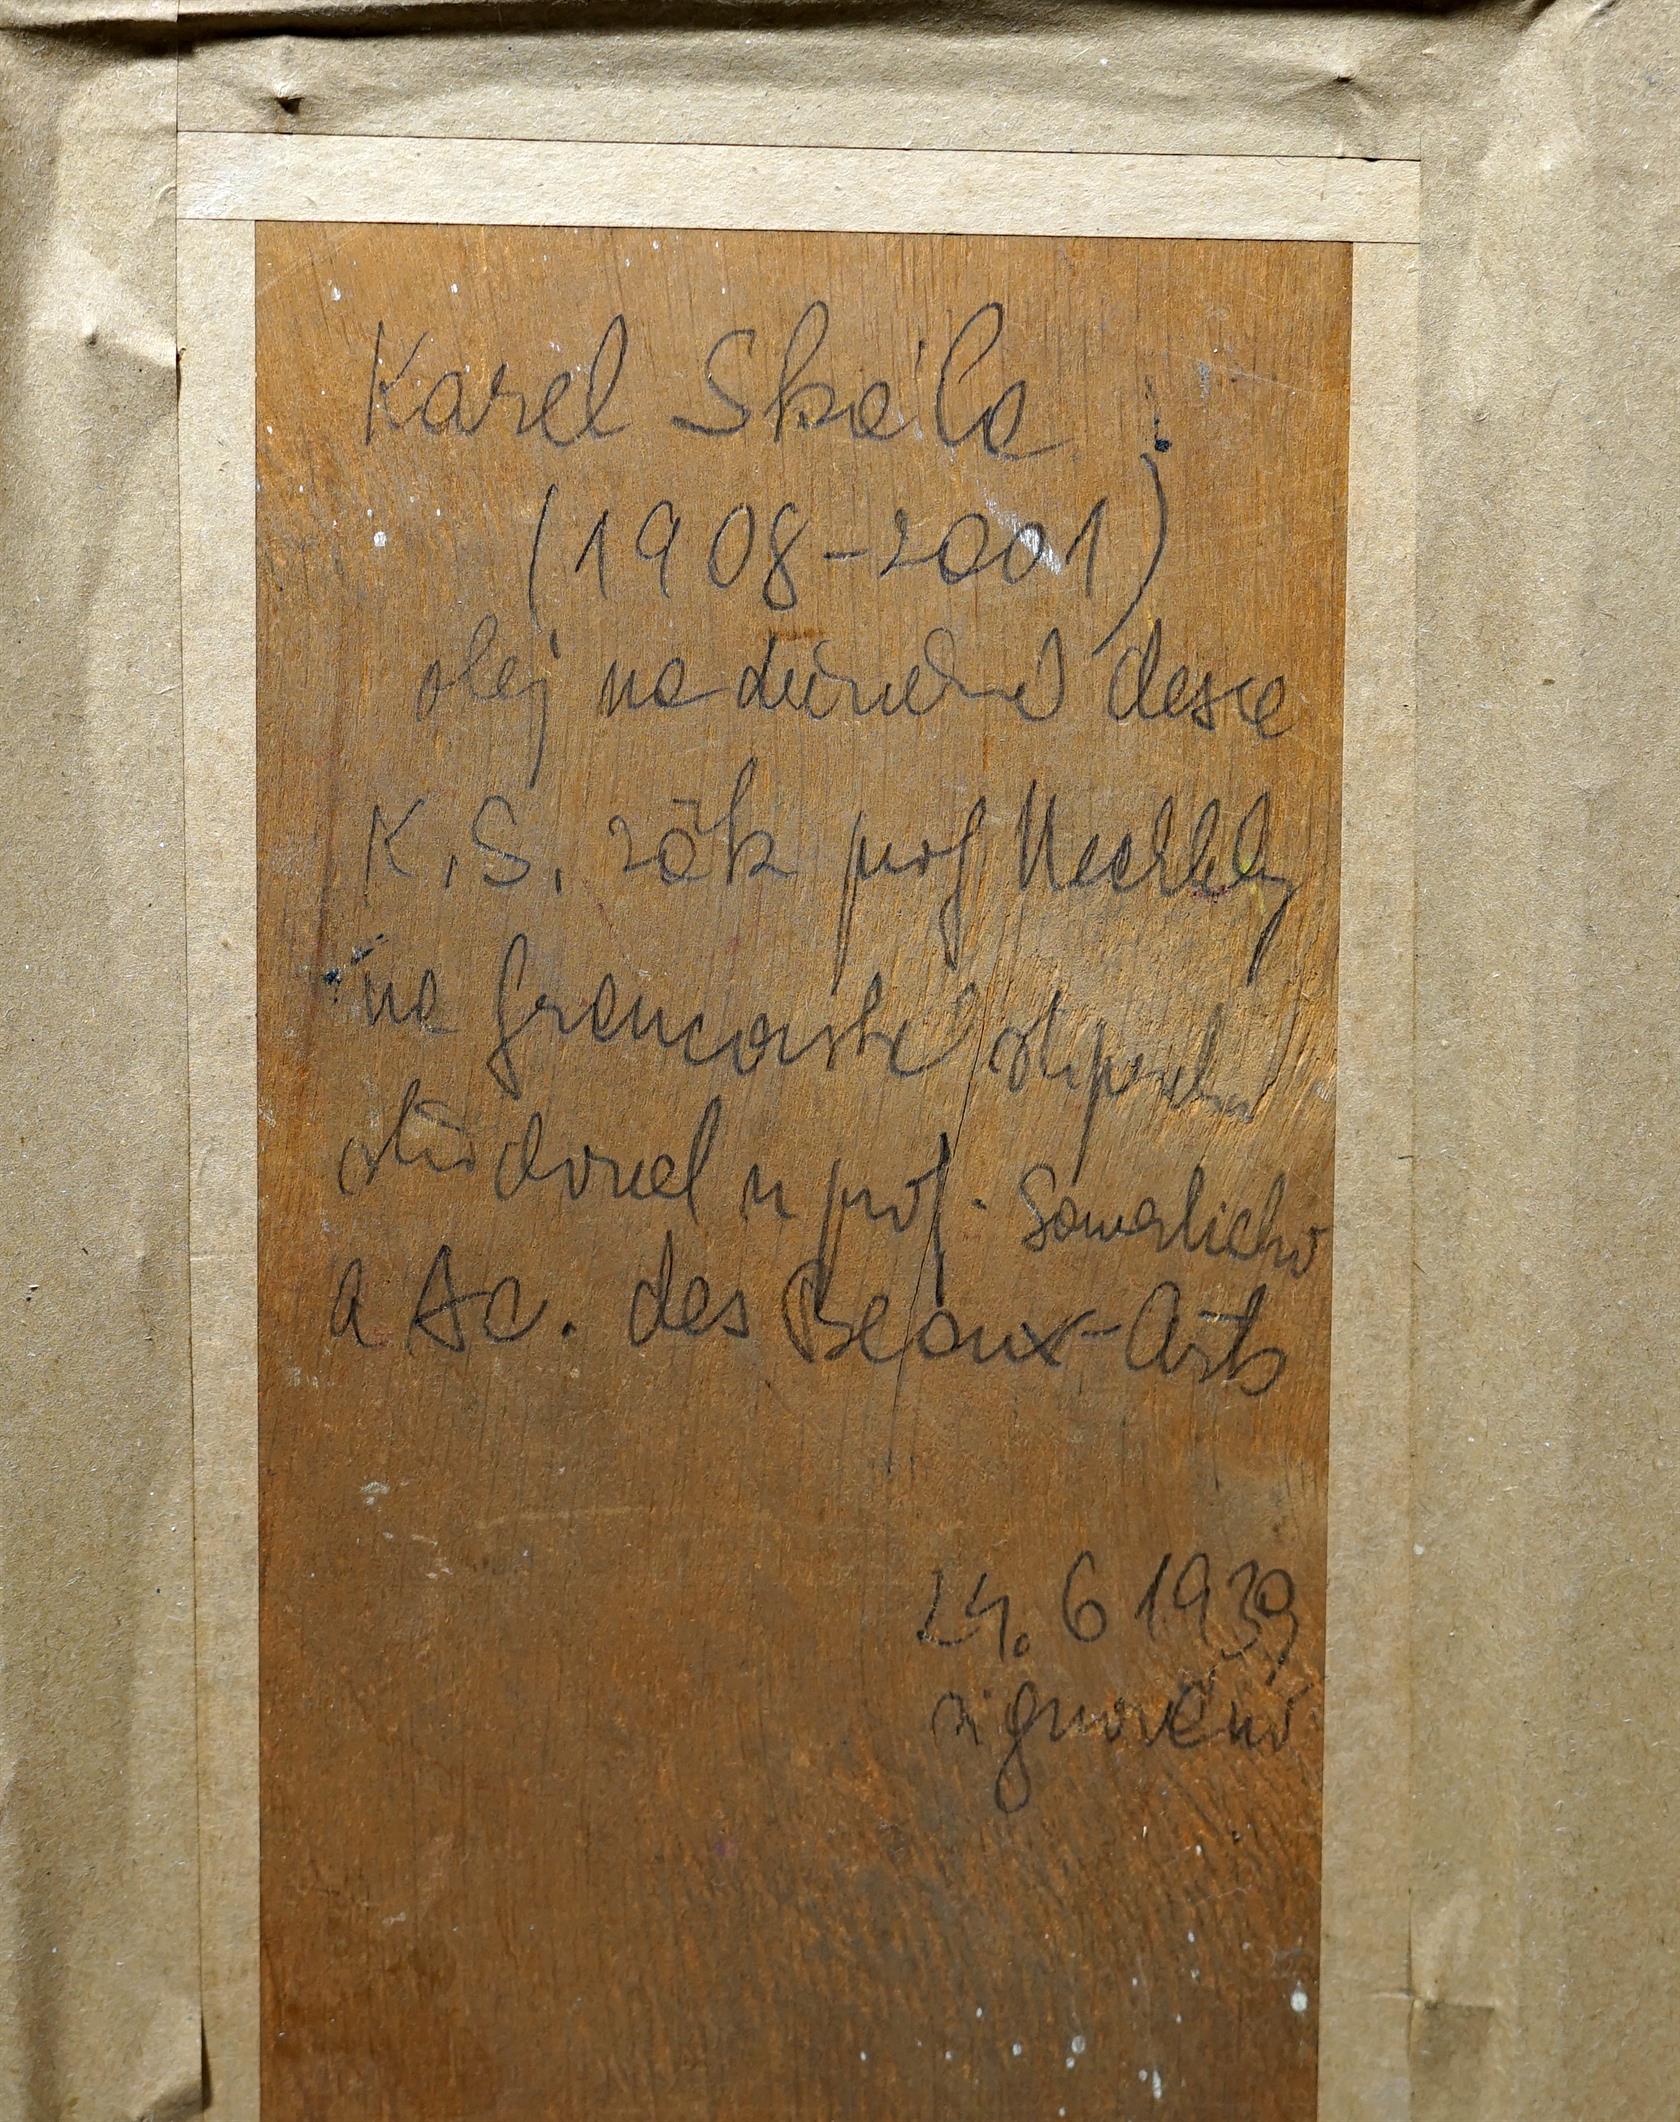 Karel Skála
(1908-2001)
olej na dřevě desce
K.S. žák prof Nechleby
na francouzské stipend.
studoval u prof.
a Ac. des Beaux-Arts
24. 6 1939
signováno